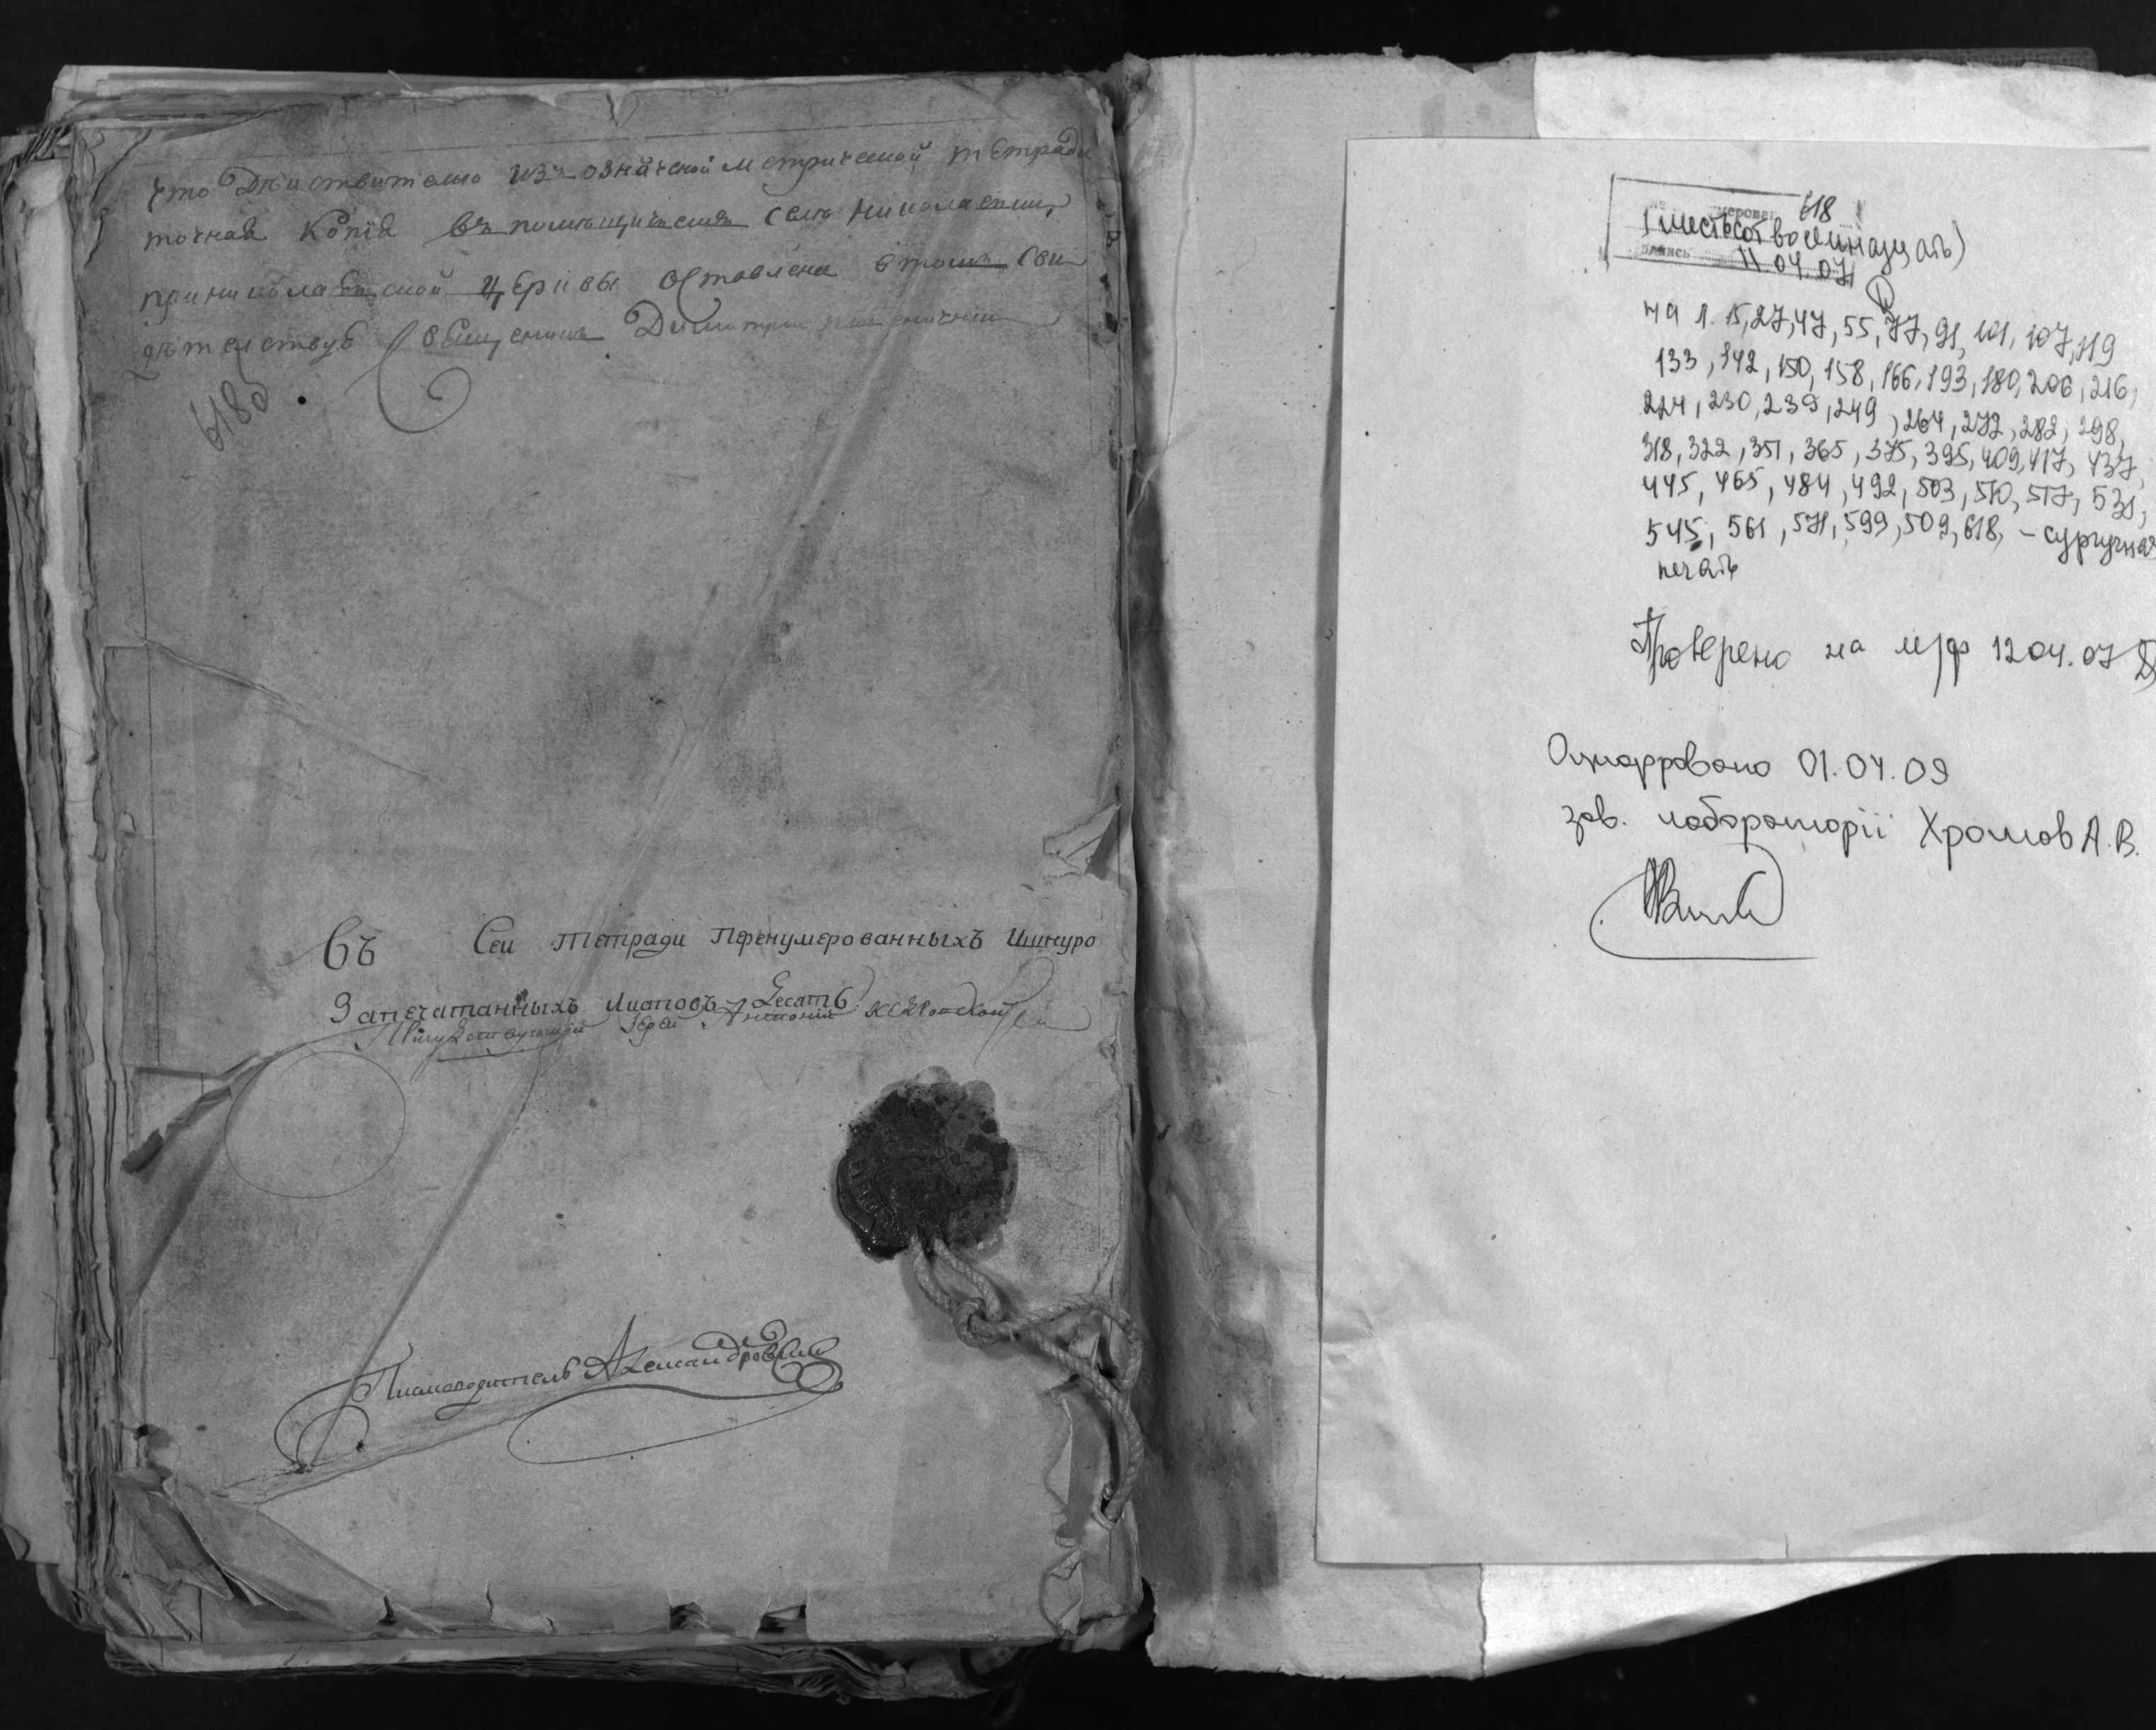 что Действително изъ означеной Метрической тетради
точная Копия въ помещичьемъ селе Николаевки,
при николаевской церквы Оставлена в томъ Сви
детелствуб Священикъ Димитрий
618об
Въ Сеи тетради перенумерованныхъ Ишнуро
Запечатанныхъ листовъ десять
Присудствующий Иерей Антоний
Писмоводитель Александровский
618
(шестьсот восемнадцать)
11.04.07
на л. 15, 27, 47, 55, 77, 91, 101, 107, 119
133, 142, 150, 158, 166, 193, 180, 206, 216,
224, 230, 239, 249, 264, 272, 282, 298,
318, 322, 351, 365, 375, 395, 409, 417, 437,
445, 465, 484, 492, 503, 510, 517, 531,
545, 561, 571, 599, 509, 618, - сургучная
печать
Проверено на м/ф 12 04.07
Оцифровано 01.04.09
зав. лабораторії Хромов А.В.